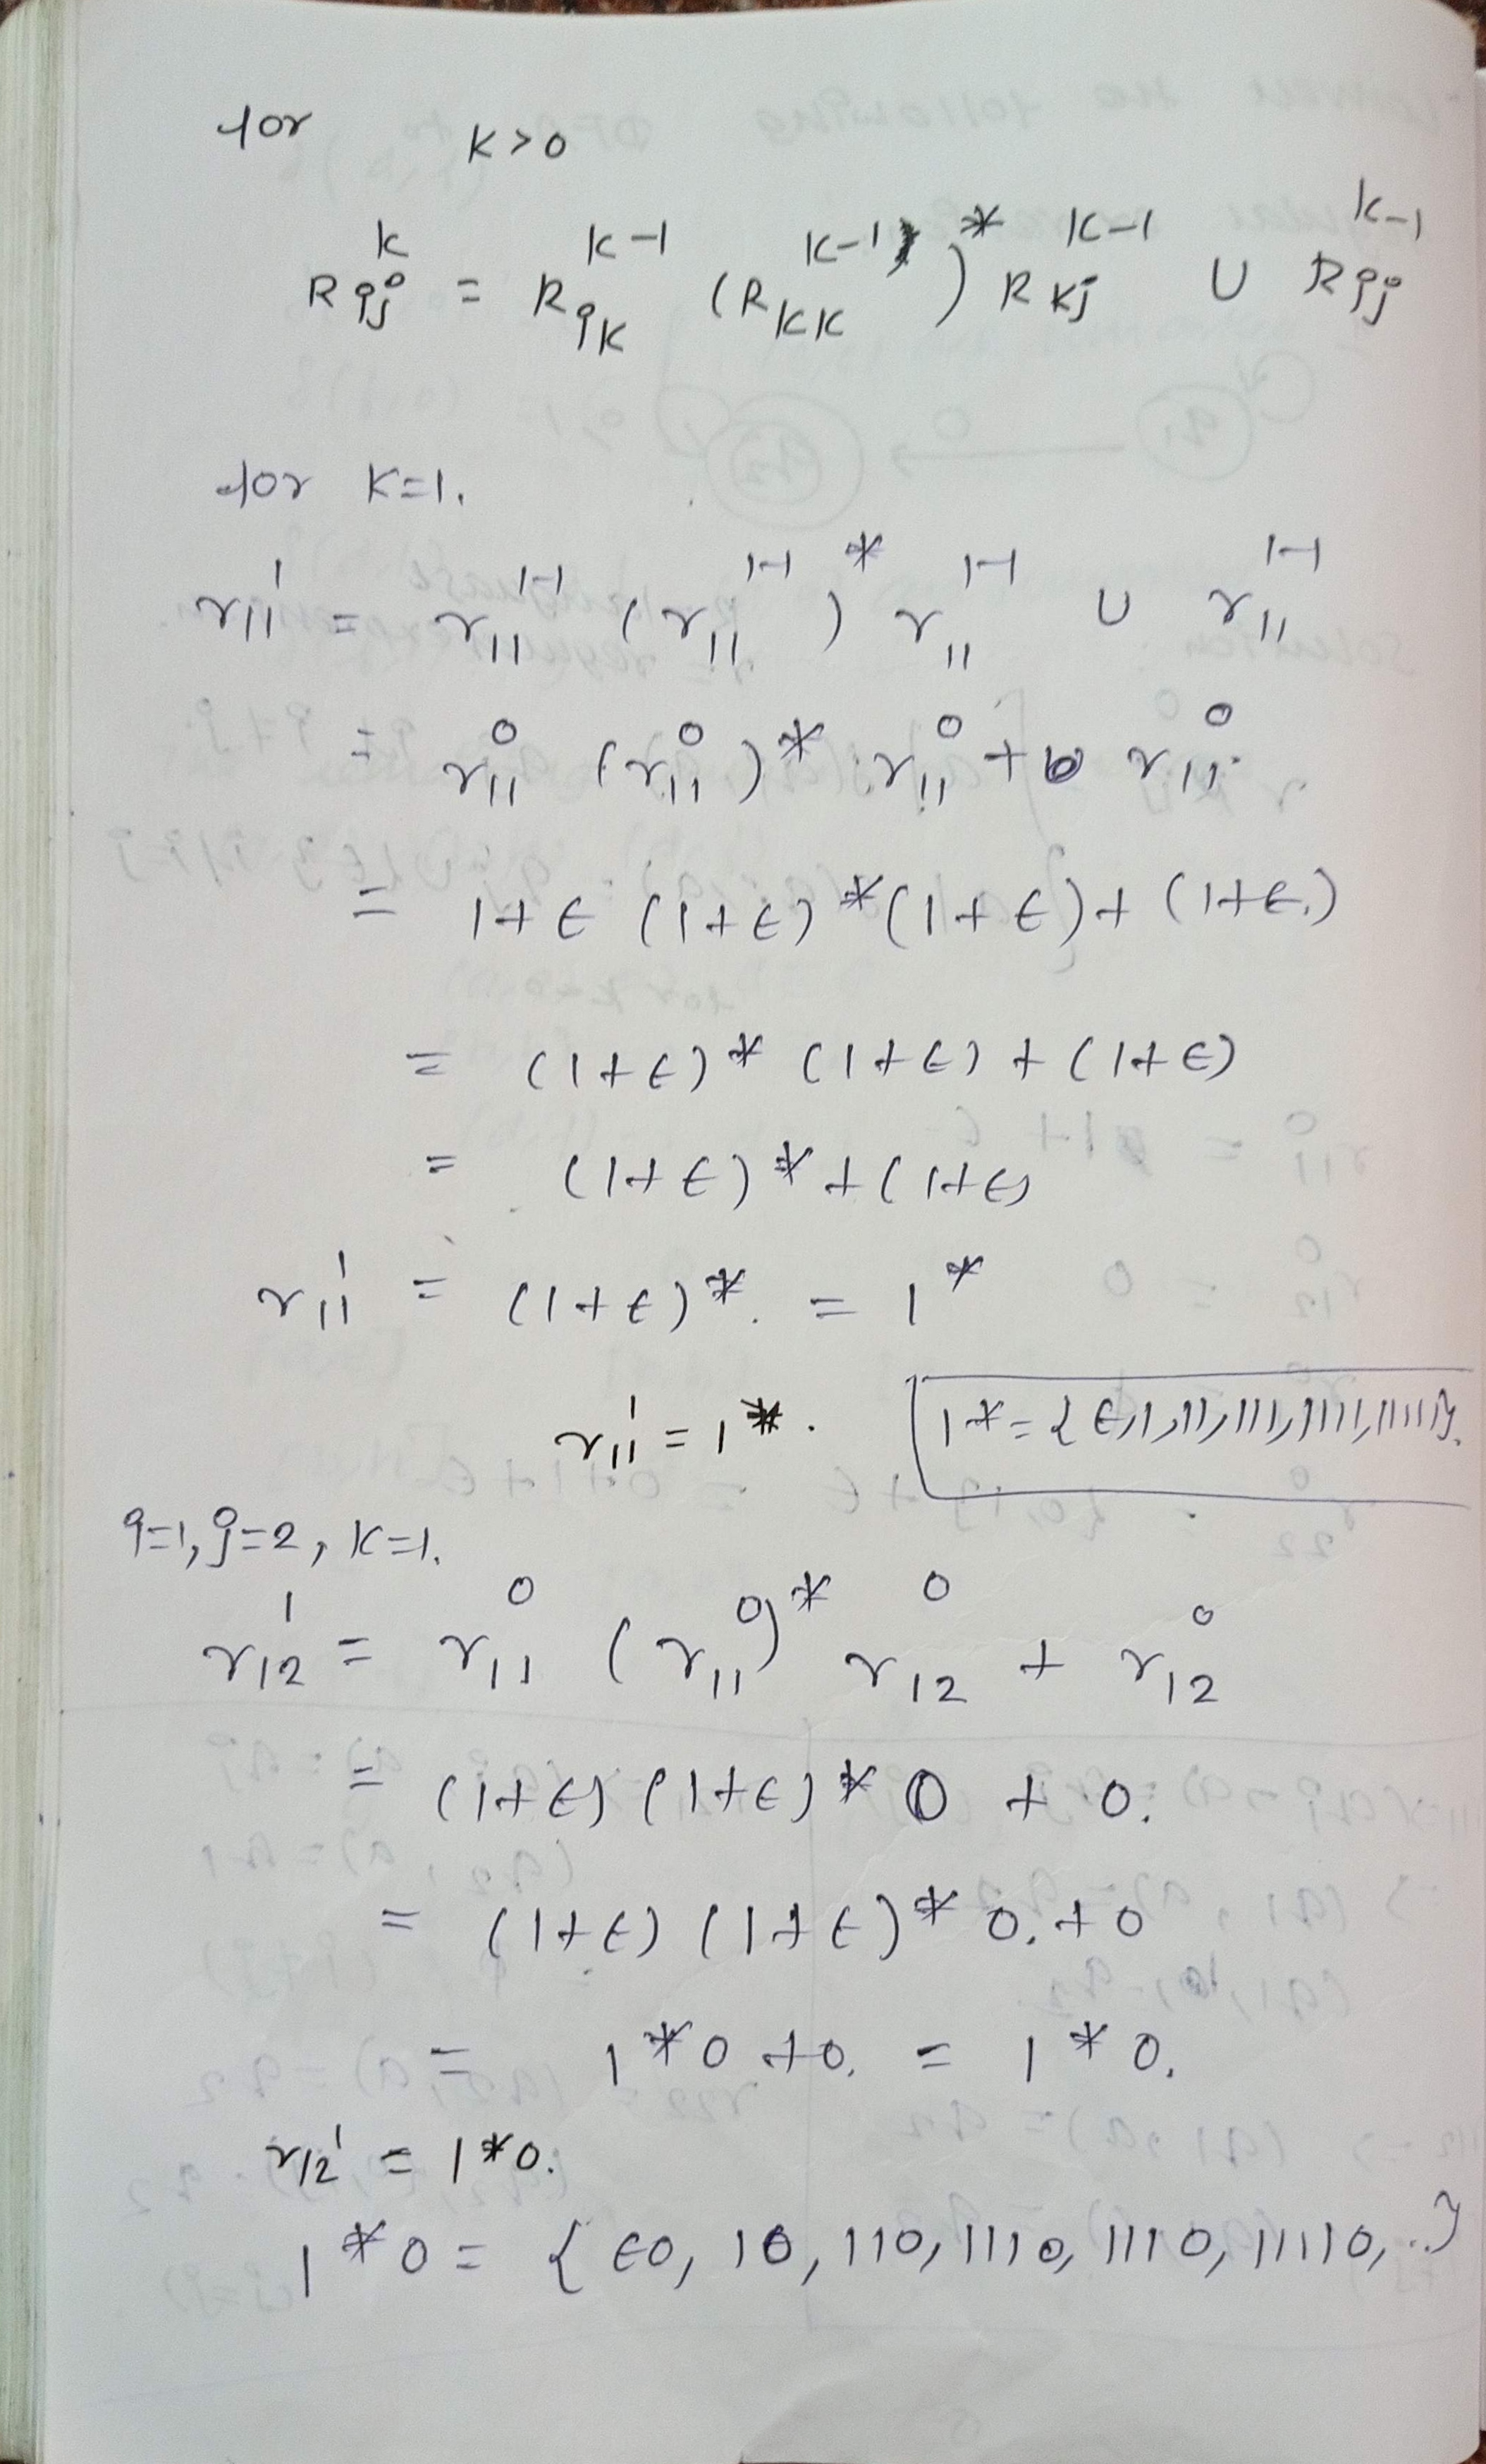 for K>0
R_ij^k = R_ik^k-1 (R_KK^k-1)* R_kj^k-1 ∪ R_ij^k-1
for K=1.
r_11^1 = r_11^1-1 (r_11^1-1)* r_11^1-1 ∪ r_11^1-1
= r_11^0 (r_11^0)* r_11^0 + r_11^0.
= 1+ϵ (1+ϵ)*(1+ϵ)+(1+ϵ.)
= (1+ϵ)* (1+ϵ) + (1+ϵ)
= (1+ϵ)*+(1+ϵ)
r_11^1 = (1+ϵ)*. = 1*
r_11^1 = 1*. 1*={ϵ,1,11,111,1111,11111}.
i=1, j=2, K=1.
r_12^1 = r_11^0 (r_11^0)* r_12^0 + r_12^0
= (1+ϵ) (1+ϵ)* 0 + 0.
= (1+ϵ) (1+ϵ)* 0.+0
= 1*0+0. = 1*0.
r_12^1 = 1*0.
1*0 = {ϵ0, 10, 110, 1110, 1110, 11110, ..}